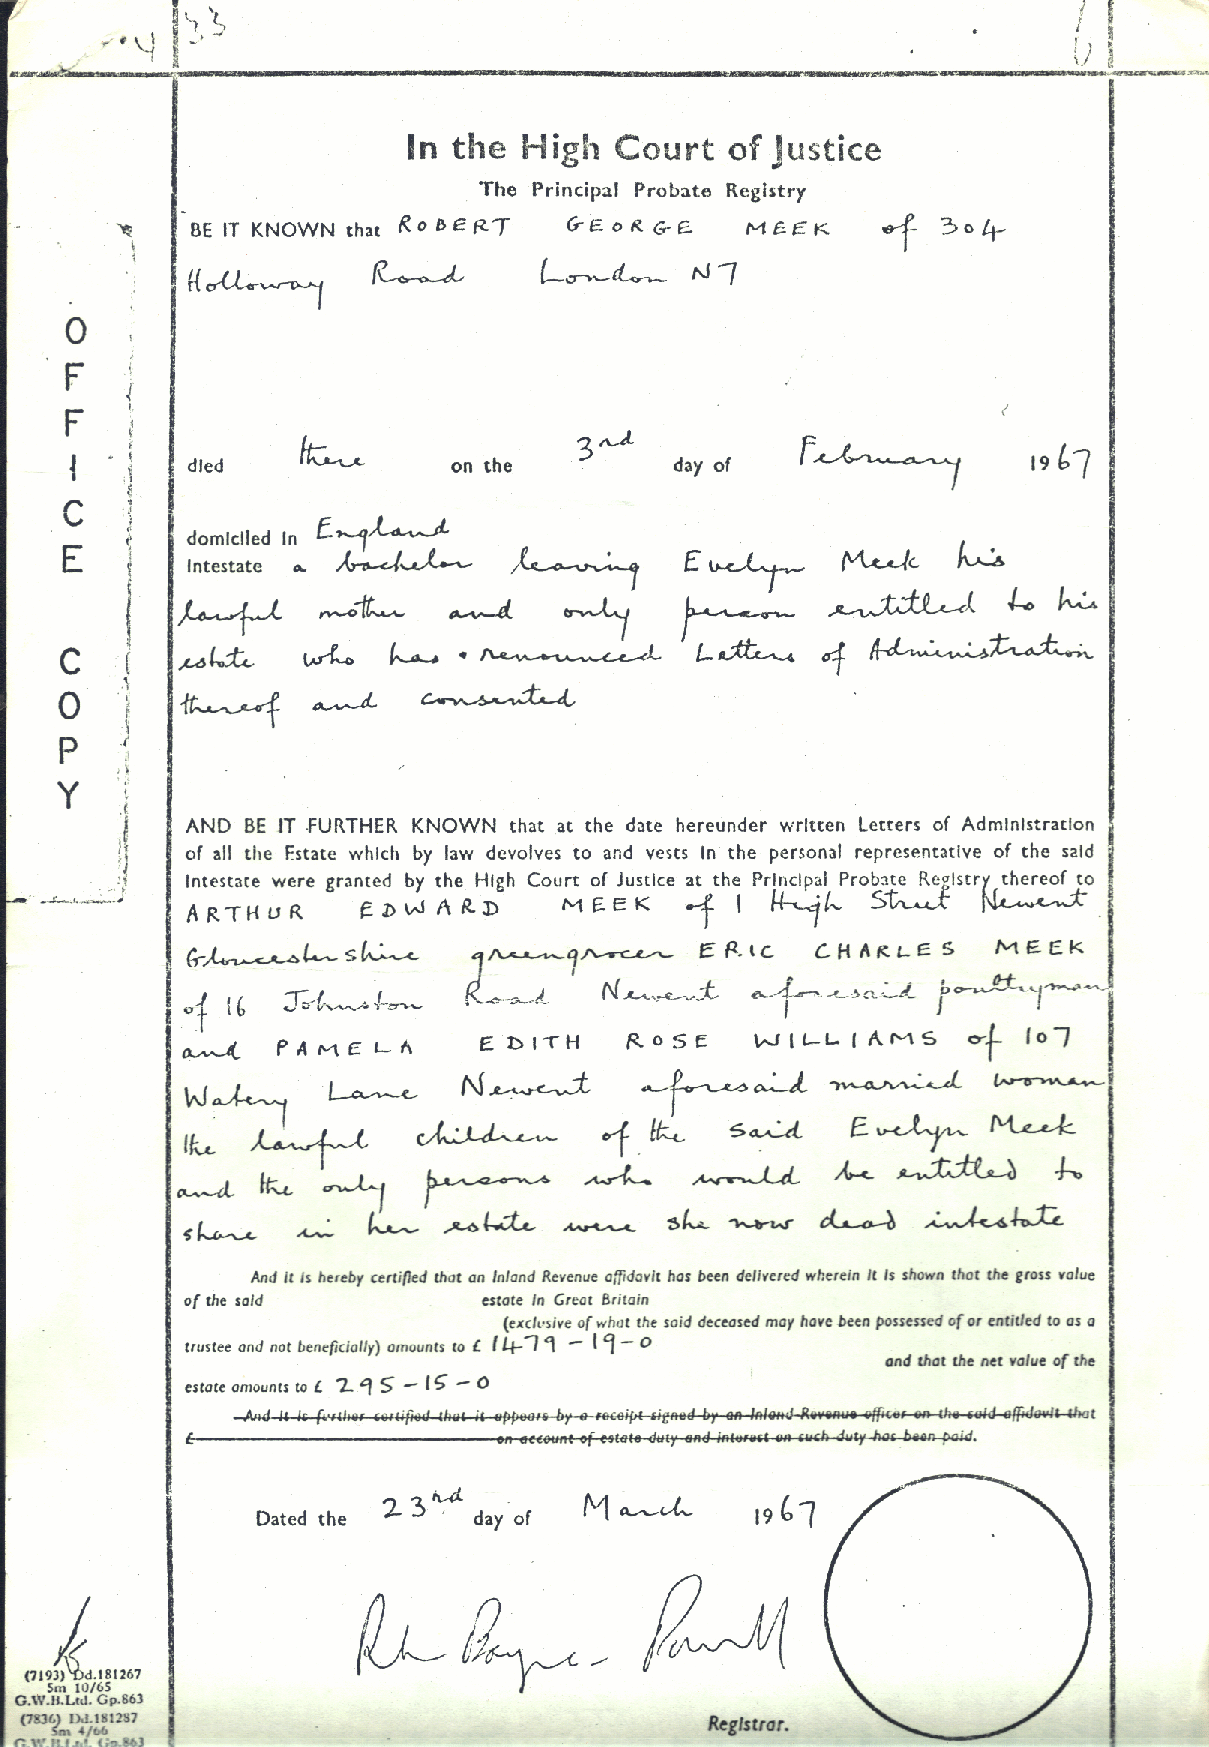 33
In the High Court of Justice
The Principal Probate Registry
BE IT KNOWN that ROBERT GEORGE MEEK of 304
Holloway Road London N7
died there on the 3rd day of February 1967
domiciled in England
Intestate a bachelor leaving Evelyn Meek his
lawful mother and only person entitled to his
estate who has renounced Letters of Administration
thereof and consented
OFFICE COPY
AND BE IT FURTHER KNOWN that at the date hereunder written Letters of Administration
of all the Estate which by law devolves to and vests in the personal representative of the said
intestate were granted by the High Court of Justice at the Principal Probate Registry thereof to
ARTHUR EDWARD MEEK of 1 High Street Newent
Gloucestershire greengrocer ERIC CHARLES MEEK
of 16 Johnston Road Newent aforesaid poultryman
and PAMELA EDITH ROSE WILLIAMS of 107
Watery Lane Newent aforesaid married woman
the lawful children of the said Evelyn Meek
and the only persons who would be entitled to
share in her estate were she now dead intestate
And it is hereby certified that an Inland Revenue affidavit has been delivered wherein it is shown that the gross value
of the said estate in Great Britain
(exclusive of what the said deceased may have been possessed of or entitled to as a
trustee and not beneficially) amounts to £ 1479-19-0
and that the net value of the
estate amounts to £ 295-15-0
And it is further certified that it appears by a receipt signed by an Inland Revenue officer on the said affidavit that
£ on account of estate duty and interest on such duty has been paid.
Dated the 23rd day of March 1967
Registrar.
(7193) Dd.181267
5m 10/65
G.W.B.Ltd. Gp.863
(7836) Dd.181287
5m 4/66
G.W.B.Ltd. Gp.863